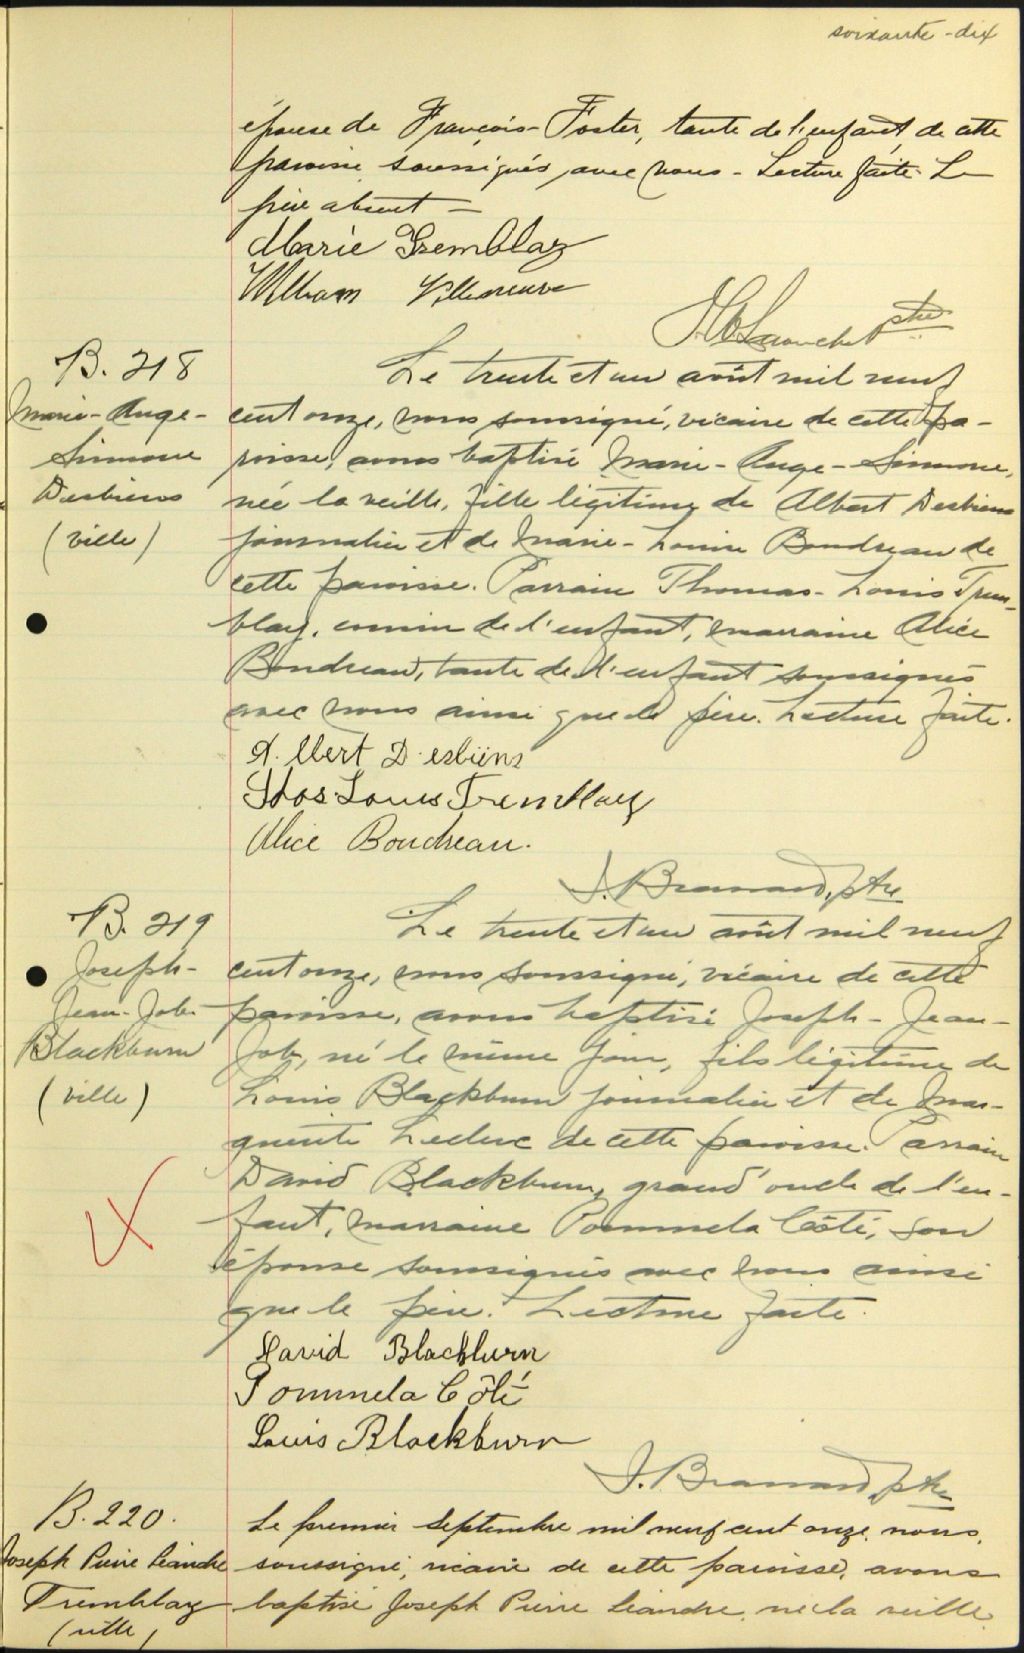 soixante-dix
épouse de François Foster, tante de l'enfant, de cette
paroisse soussignés avec nous - Lecture faite. Le
père absent -
Marie Tremblay
William Villeneuve
ptre
B. 218
Marie-Ange-
Simone
Desbiens
(ville)
Le trente et un août mil neuf
cent onze, nous soussigné, vicaire de cette pa-
roisse, avons baptisé Marie-Ange-Simone,
née la veille, fille légitime de Albert Desbiens
journalier et de Marie-Louise Boudreau de
cette paroisse. Parrain Thomas-Louis Trem-
blay, cousin de l'enfant, marraine Alice
Boudreau, tante de l'enfant soussignés
avec nous ainsi que le père. Lecture faite.
Albert Desbiens
Thos. Louis Tremblay
Alice Boudreau.
ptre
B. 219
Joseph-
Jean-Job-
Blackburn
(ville)
Le trente et un août mil neuf
cent onze, nous soussigné, vicaire de cette
paroisse, avons baptisé Joseph-Jean-
Job, né le même jour, fils légitime de
Louis Blackburn journalier et de Mar-
guerite Leclerc de cette paroisse. Parrain
David Blackburn, grand'oncle de l'en-
fant, marraine Pommela Côté, son
épouse soussignés avec nous ainsi
que le père. Lecture faite.
David Blackburn
Pommela Côté
Louis Blackburn
ptre
B. 220.
Joseph Pierre Léandre
Tremblay
(ville)
Le premier septembre mil neuf cent onze, nous,
soussigné, vicaire de cette paroisse, avons
baptisé Joseph Pierre Léandre, né la veille,